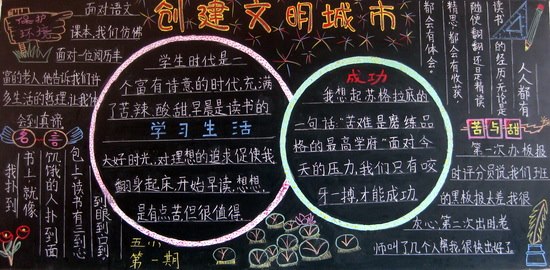 创建文明城市
保护
环境
面对语文
课本,我们仿佛
面对一位阅历丰
富的老人,他告诉我们许
多生活的哲理,让我们体
会到真谛
名言
我扑到
书上,就像
饥饿的人扑到面
包上读书有三到心
到眼到口到
学生时代是一
个富有诗意的时代,充满
了苦、辣、酸甜,早晨是读书的
学习生活
大好时光,对理想的追求促使我
翻身起床,开始早读,想想,
是有点苦但很值得.
五
第一期
成功
我想起苏格拉底的
一句话:"苦难是磨练品
格的最高学府"面对今
天的压力,我们只有咬
牙一搏,才能成功.
人人都有
读书的经历,无论是
随便翻翻还是精读
都会有收获
精思
都会有体会.
苦与甜
第一次办板报
时评分员说,我们班
的黑板报太差,我很
灰心.第二次出时,老
师叫了几个人帮我,很快出好了.